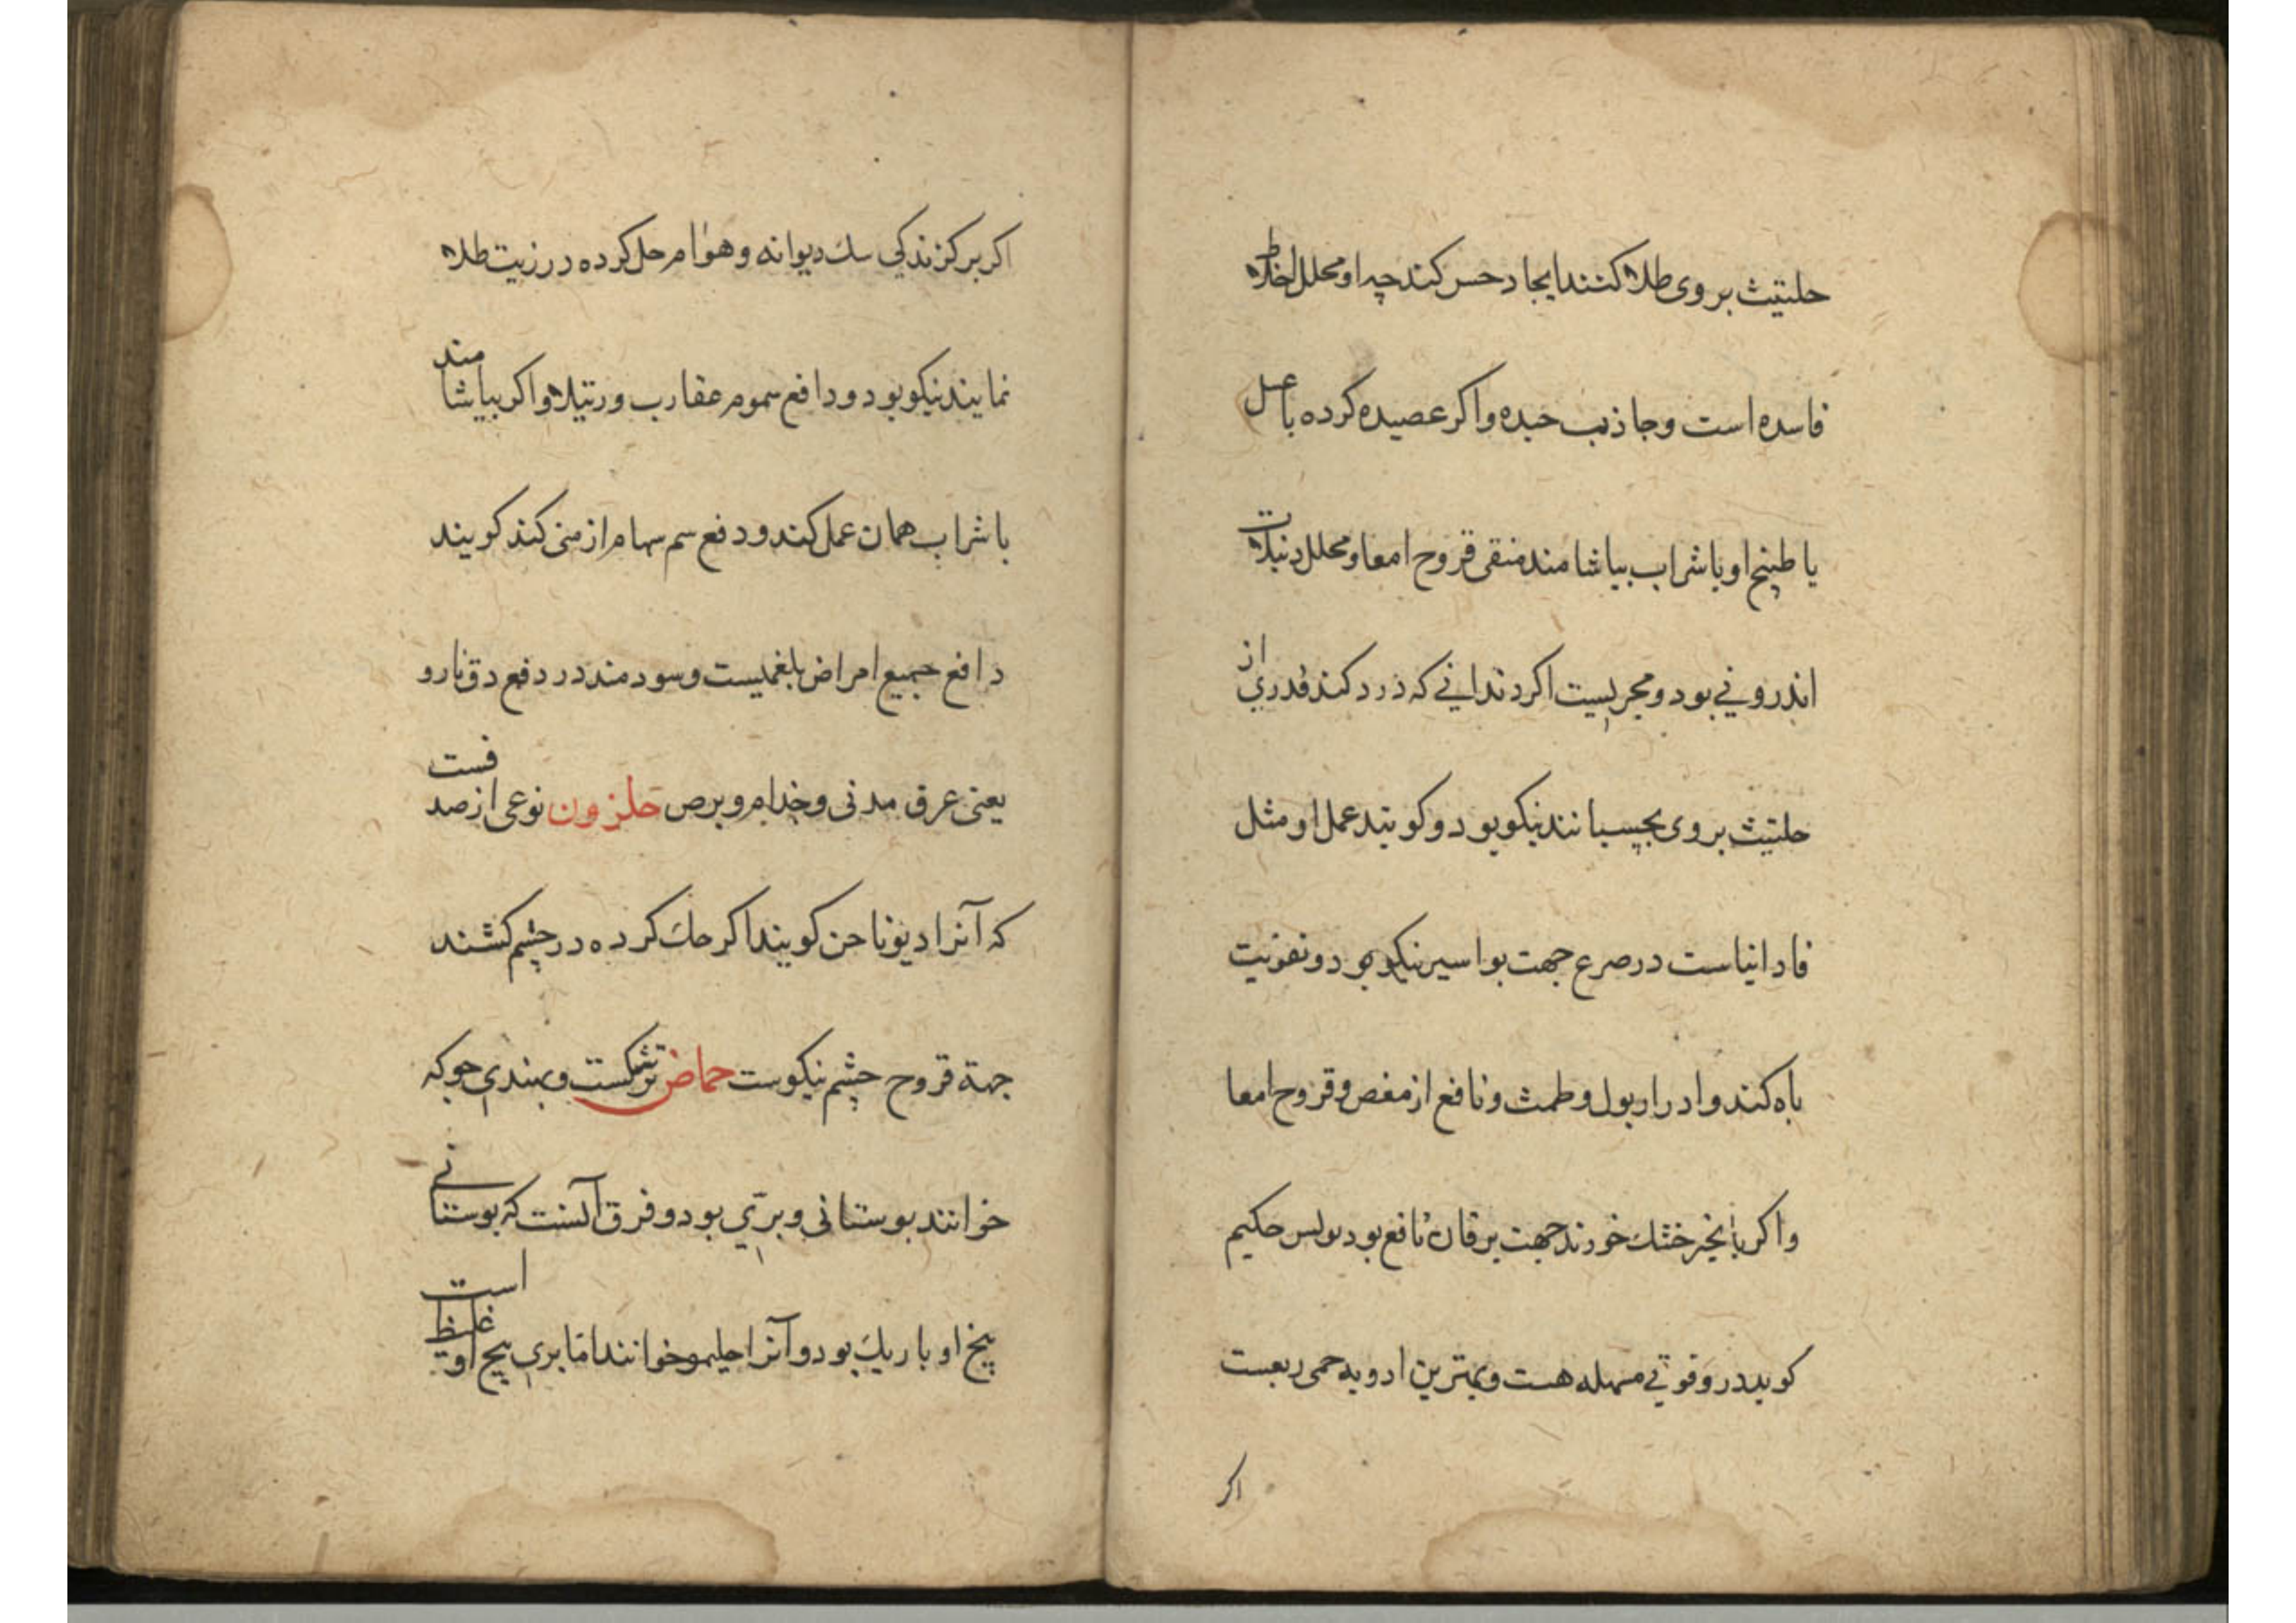 حلتیث بروی طلا کنند ایجاد حس کند چه او محلل اخلاط
فاسده است و جاذب جیده و اکر عصیده کرده با عسل
یا طپیخ او با شراب بیاشامند منقی قروح امعا و محلل دنبلات
اندرونی بود و مجربیست اکر دندانی که درد کند قدری از
حلتیث بروی بچسبانند نیکو بود و کویند عمل او مثل
فاوانیاست در صرع جهت بواسیر نیکو بود و تقویت
باه کند و ادرار بول و طمث و نافع از مغص و قروح امعا
و اکر با انجیر خشك خورند جهت یرقان نافع بود بولس حکیم
کوید در و قوتی مسهله هست و بهترین ادویه حمی ربعست
اکر
اکر بر کزندکی سك دیوانه و هوام حل کرده در زیت طلا
نمایند نیکو بود و دافع سموم عقارب و رتیلا و اکر بیاشامند
با شراب همان عمل کند و دفع سم سهام ازمنی کند کویند
دافع جمیع امراض بلغمیست و سودمند در دفع دق نارو
یعنی عرق مدنی و جذام و برص حلزون نوعی از صدفست
که آنرا دیو ناخن کویند اکر حك کرده در چشم کشند
جهة قروح چشم نیکوست حماض ترشکست و بهندی چوکه
خوانند بوستانی و بری بود و فرق آنست که بوستانی
بیخ او باریك بود و آنرا حلیمو خوانند اما بری بیخ او غلیظ است